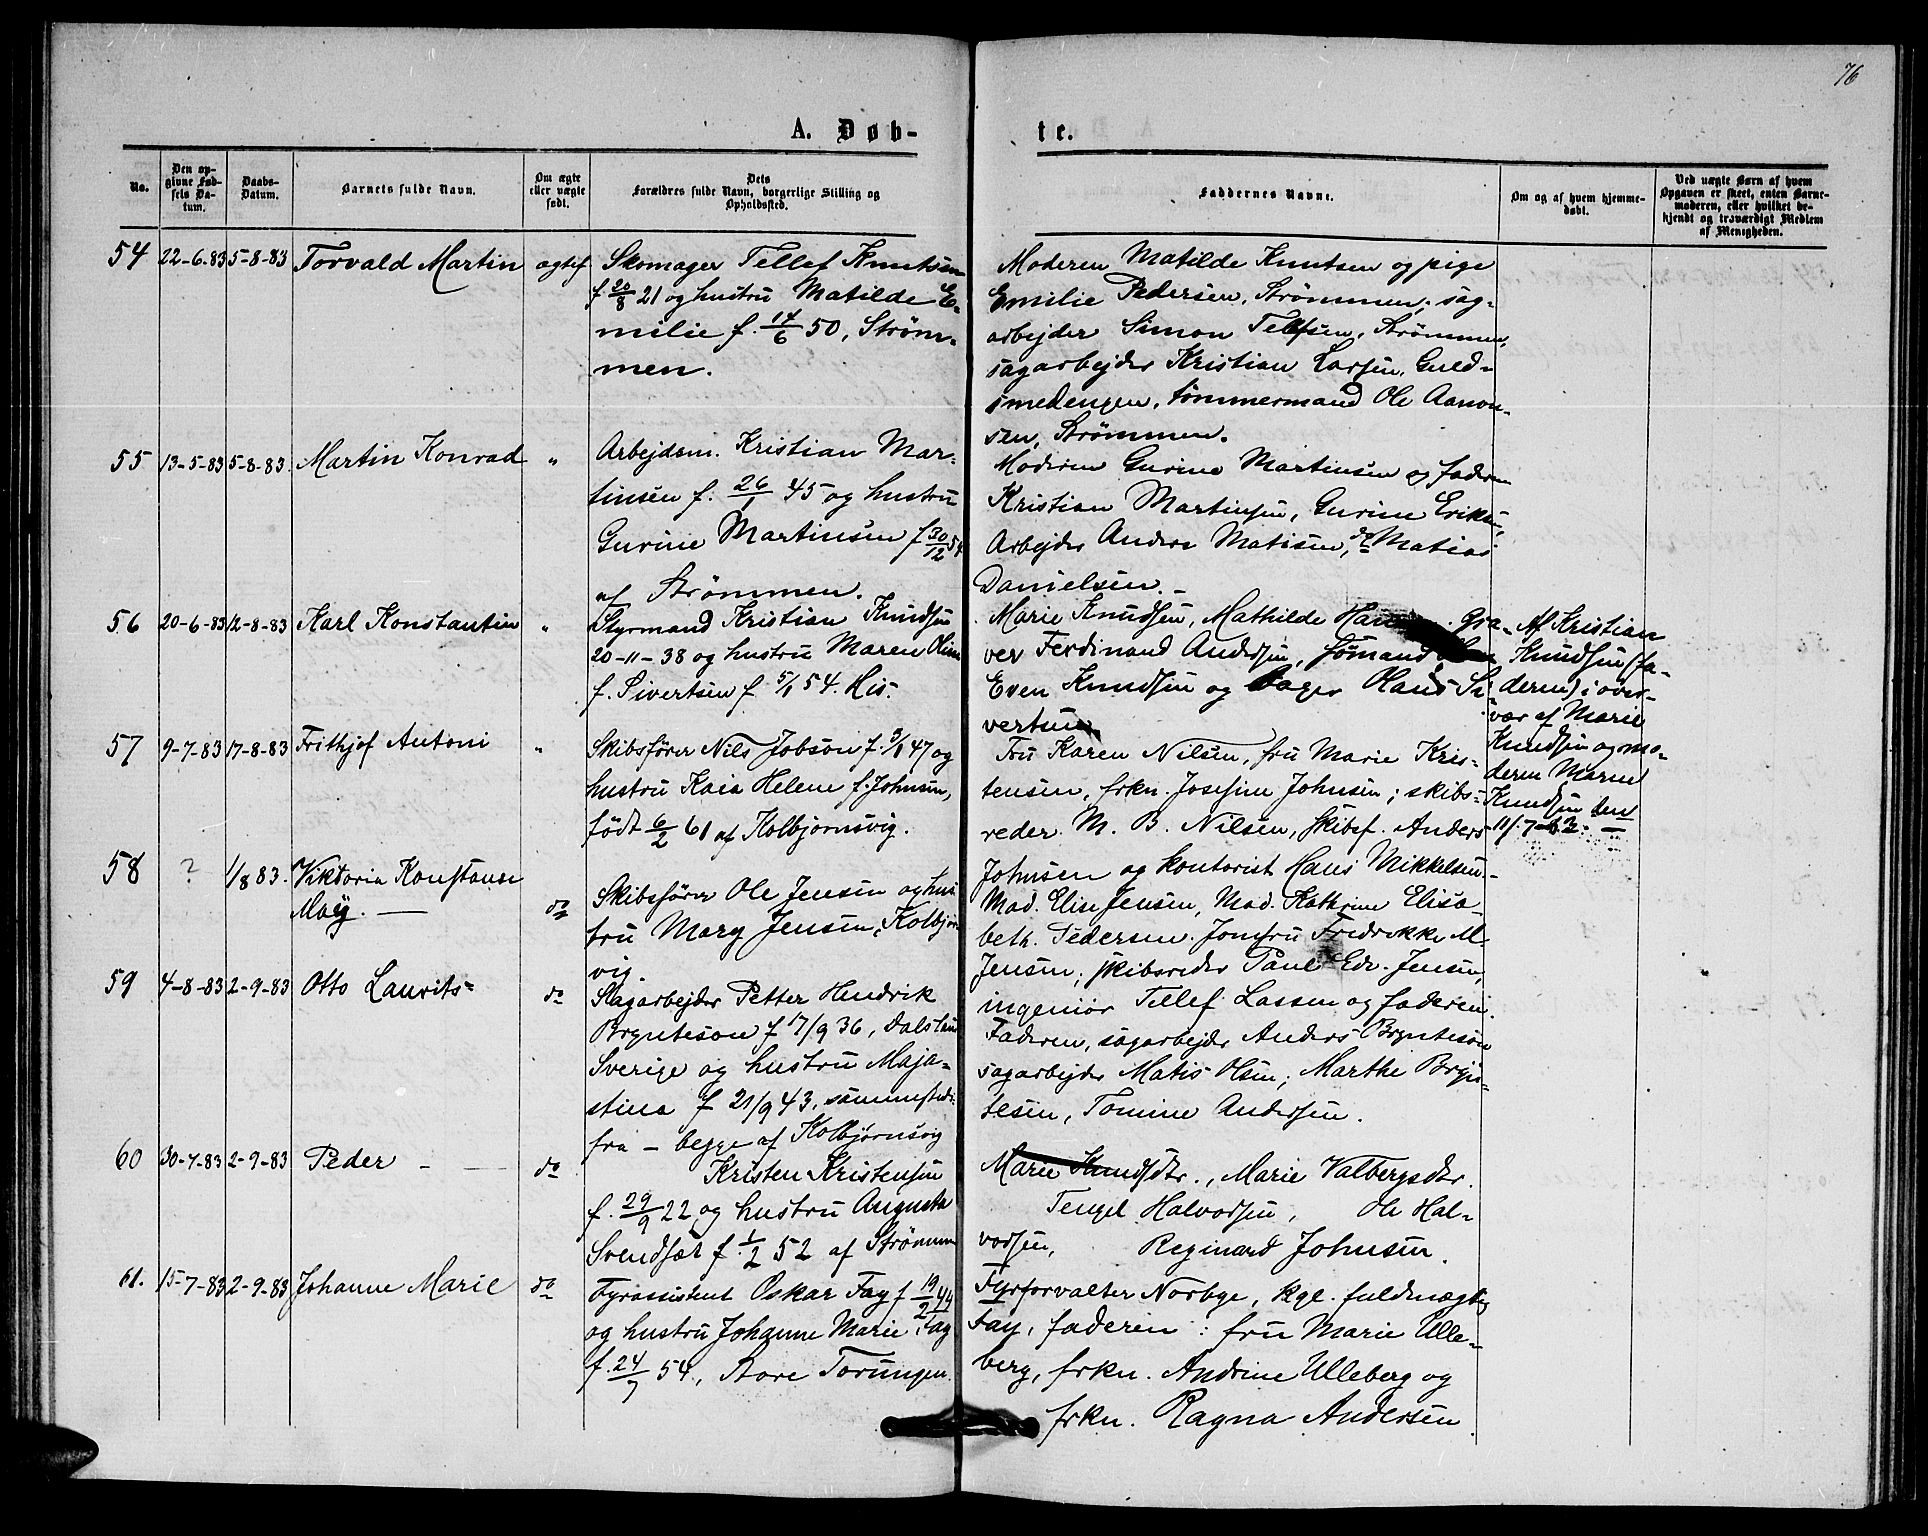 76
A. Døb-
te.
No.
Den op-
givne Fød-
sels Da-
tum.
Daabs-
Datum.
Barnets fulde Navn.
Om ægte
eller uægte
født.
Dets
Forældres fulde Navn, borgerlige Stilling og
Opholdssted.
Faddernes Navne.
Om og af hvem hjemme-
døbt.
Ved uægte Børn af hvem
Opgaven er skeet, enten Barne-
moderen, eller hvilket be-
kjendt og troværdigt Medlem
af Menigheden.
54 22-6-83 5-8-83 Torvald Martin
Skomager Tellef Knutsen
f. 20/8 21 og hustru Matilde E-
milie f. 17/6 50, Strøm-
men.
Moderen Matilde Knutsen og pige
Emilie Pedersen, Strømmen, sag-
arbejder Simon Tellefsen, Strømmen,
sagarbejder Kristian Larsen, Guld-
smedengen, tømmermand Ole Aanon-
sen, Strømmen.
55 13-5-83 5-8-83. Martin Konrad "
Arbejdsm. Kristian Mar-
tinsen f. 26/1 45 og hustru
Gurine Martinsen f 30/12 54
af Strømmen.
Moderen Gurine Martinsen og faderen
Kristian Martinsen, Gurine Eriksen,
Arbejder Anders Matisen, do Matias
Danielsen. -
56 20-6-83 12-8-83 Karl Konstantin "
Styrmand Kristian Knudsen
20-11-38 og hustru Maren Oline
f. Sivertsen f 5/1 54. His.
Marie Knudsen, Mathilde Gra-
ver Ferdinand Andersen, sømand
Even Knudsen og Olaus Si-
vertsen
Af Kristian
Knudsen (fa-
deren) i over-
vær af Marie
Knudsen og mo-
deren Maren
Knudsen den
11/-7-83.
57 9-7-83 17-8-83 Frithjof Antoni "
Skibsfører Nils Jobson f. 5/1 47 og
hustru Kaia Helene f. Johnsen,
født 6/2 61 af Kolbjørnsvig.
Fru Karen Nilsen, fru Marie Kris-
tensen, frkn. Josefine Johnsen; skibs-
reder M. B. Nilsen, skibsf. Anders
Johnsen og kontorist Hans Mikkelsen.
58 ? 1/8 83. Viktoria Konstanse
May. — do
Skibsfører Ole Jensen og hus-
tru Mary Jensen, Kolbjørns-
vig.
Mad. Elise Jensen, Mad. Kathrine Elisa-
beth. Pedersen. Jomfru Fredrikke M.
Jensen; skibsreder Paul Edv. Jensen,
ingeniør Tellef Lassen og faderen.
59 4-8-83 2-9-83 Otto Laurits- do
Sagarbejder Petter Hendrik
Bryntesøn f 17/9 36, Dalsland
Sverige og hustru Maja-
stina f 21/9 43, sammesteds-
fra - begge af Kolbjørnsvig
Faderen, sagarbejder Anders Bryntesøn
sagarbejder Matis Olsen; Marthe Bryn-
tesen, Tomine Andersen.
60 30-7-83 2-9-83 Peder - — do
Kristen Kristensen
f. 29/9 22 og hustru Augusta
Svendsdt. f. 1/2 52 af Strømmen
Marie Knudsdtr., Marie Valbergsdtr.
Tengel Halvorsen, Ole Hal-
vorsen, Reginard Johnsen.
61. 15-7-83 2-9-83 Johanne Marie do
Fyrassistent Oskar Fay f 19/2 44
og hustru Johanne Marie Fay
f. 24/7 54, Store Torungen.
Fyrforvalter Norbye, kgl. fuldmægtig
Fay, faderen: fru Marie Ulle-
berg, frkn. Andrine Ulleberg og
frkn. Ragna Andersen